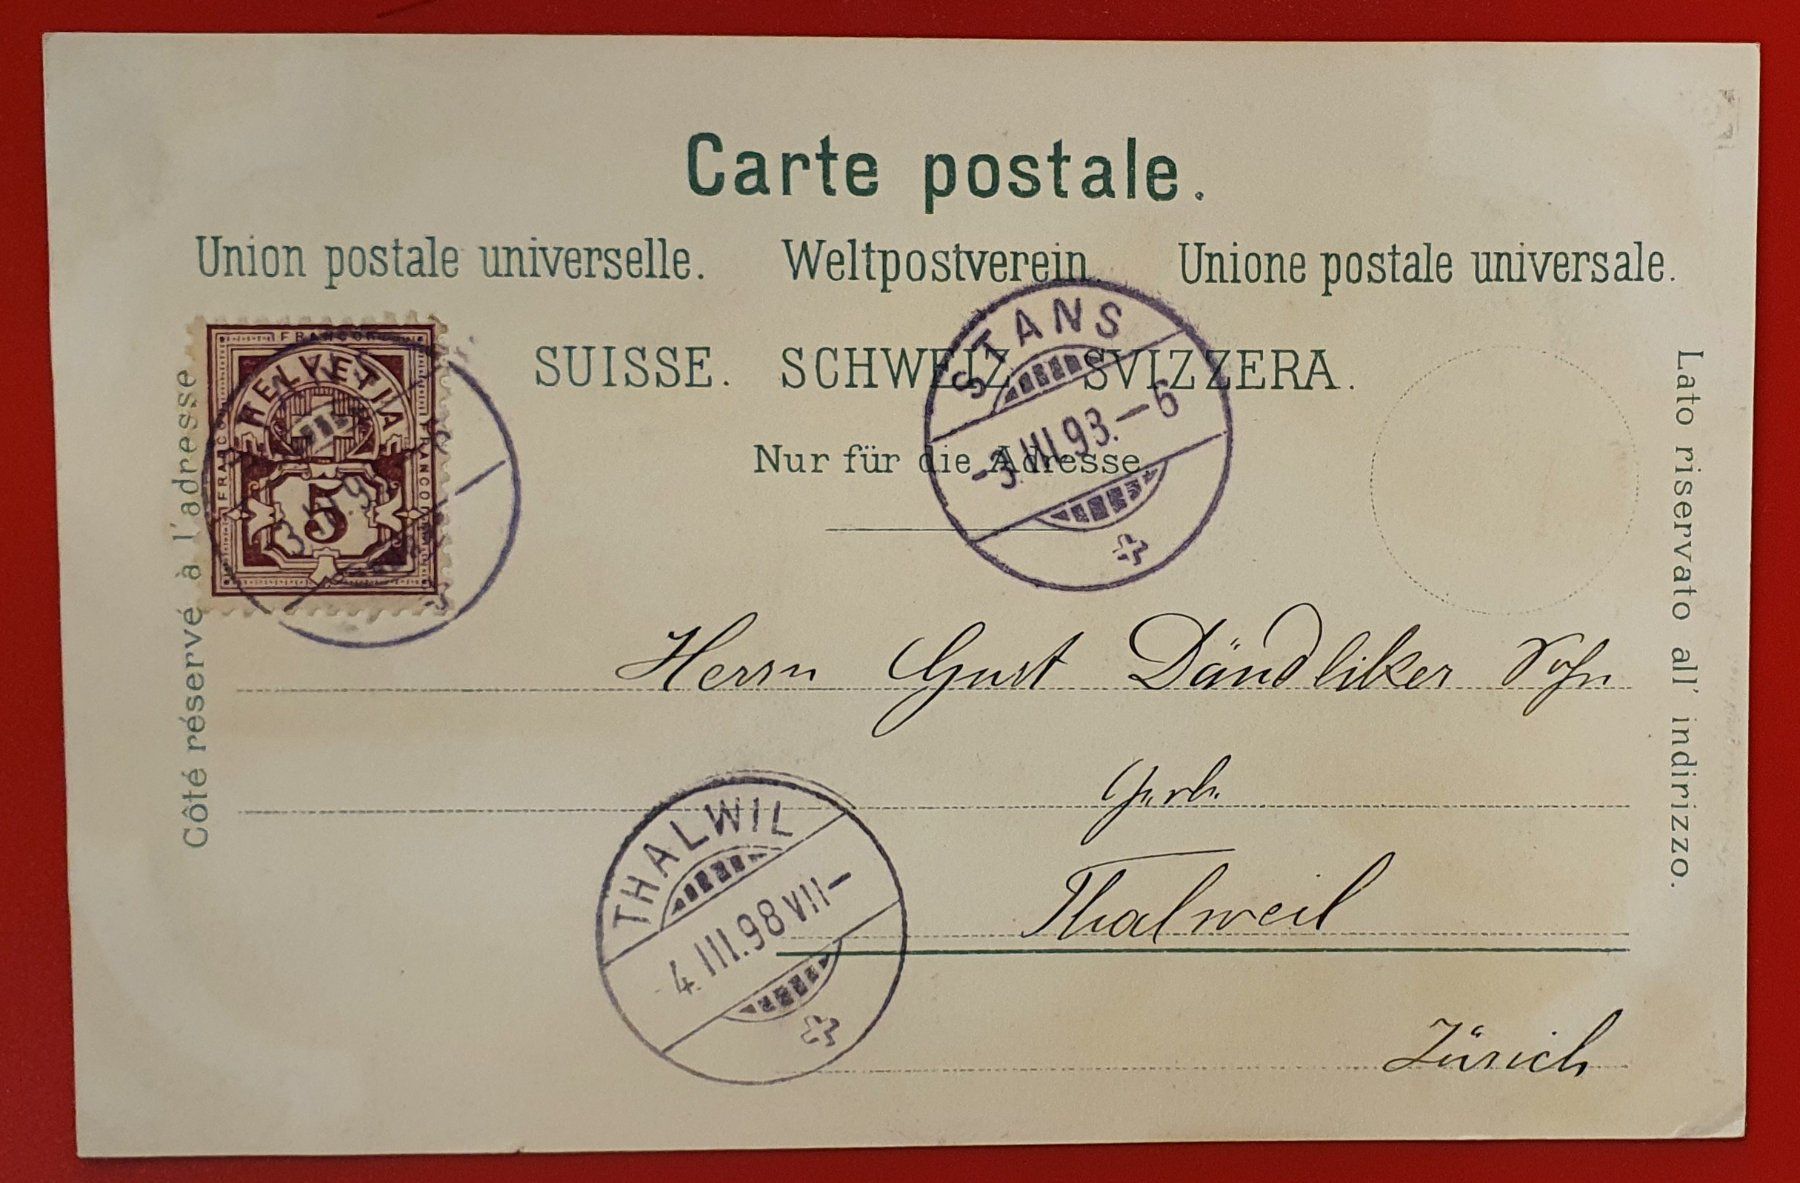 Carte postale.
Union postale universelle. Weltpostverein Unione postale universale.
SUISSE. SCHWEIZ SVIZZERA.
Nur für die Adresse.
Côté réservé à l'adresse
Lato riservato all' indirizzo.
FRANCO
HELVETIA
FRANCO
FRANCO
5
STANS
-3.III.93.-6
Herrn Gust Dändliker Sohn
Thalweil
Zürich
THALWIL
4.III.98 VII-